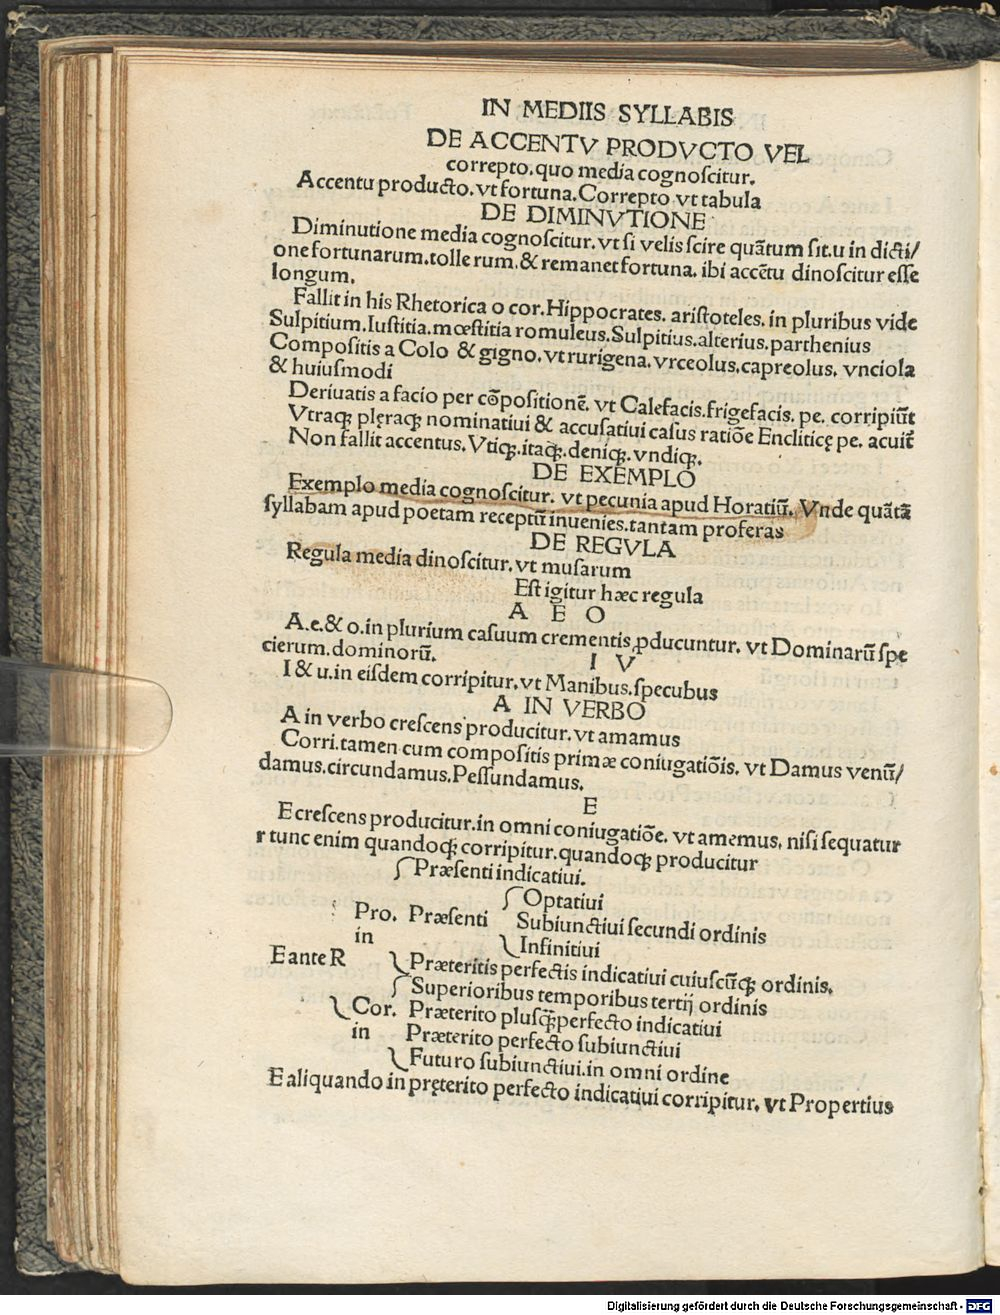 IN MEDIIS SYLLABIS
DE ACCENTV PRODVCTO VEL
correpto. quo media cognoſcitur.
Accentu producto. vt fortuna. Correpto vt tabula
DE DIMINVTIONE
Diminutione media cognoſcitur. vt ſi velis ſcire quãtum ſit. u in dicti/
one fortunarum. tolle rum. & remanet fortuna. ibi accẽtu dinoſcitur eſſe
longum.
Fallit in his Rhetorica o cor. Hippocrates. ariſtoteles. in pluribus vide
Sulpitium. Iuſtitia. mœſtitia romuleus. Sulpitius. alterius. parthenius
Compoſitis a Colo & gigno. vt rurigena. vrceolus. capreolus. vnciola
& huiuſmodi
Deriuatis a facio per cõpoſitionẽ. vt Calefacis. frigefacis. pe. corripiũt
Vtraqꝫ plęraqꝫ nominatiui & accuſatiui caſus ratiõe Encliticę pe. acuit̃
Non fallit accentus. Vtiqꝫ. itaqꝫ. deniqꝫ. vndiqꝫ.
DE EXEMPLO
Exemplo media cognoſcitur. vt pecunia apud Horatiũ. Vnde quãtã
ſyllabam apud poetam receptũ inuenies. tantam proferas
DE REGVLA
Regula media dinoſcitur. vt muſarum
Eſt igitur hæc regula
A E O
A. e. & o. in plurium caſuum crementis ꝓducuntur. vt Dominarũ ſpe
cierum. dominorũ.
I V
I & u. in eiſdem corripitur. vt Manibus. ſpecubus
A IN VERBO
A in verbo creſcens producitur. vt amamus
Corri. tamen cum compoſitis primæ coniugatiõis. vt Damus venũ/
damus. circundamus. Peſſundamus.
E
E creſcens producitur. in omni coniugatiõe. vt amemus. niſi ſequatur
r tunc enim quandoqꝫ corripitur. quandoqꝫ producitur
Præſenti indicatiui.
Optatiui
Pro. Præſenti Subiunctiui ſecundi ordinis
in Infinitiui
E ante R Præteritis perfectis indicatiui cuiuſcũqꝫ ordinis.
Superioribus temporibus tertij ordinis
Cor. Præterito pluſqꝫ̃perfecto indicatiui
in Præterito perfecto ſubiunctiui
Futuro ſubiunctiui. in omni ordine
E aliquando in pręterito perfecto indicatiui corripitur. vt Propertius
Digitalisierung gefördert durch die Deutsche Forschungsgemeinschaft - DFG